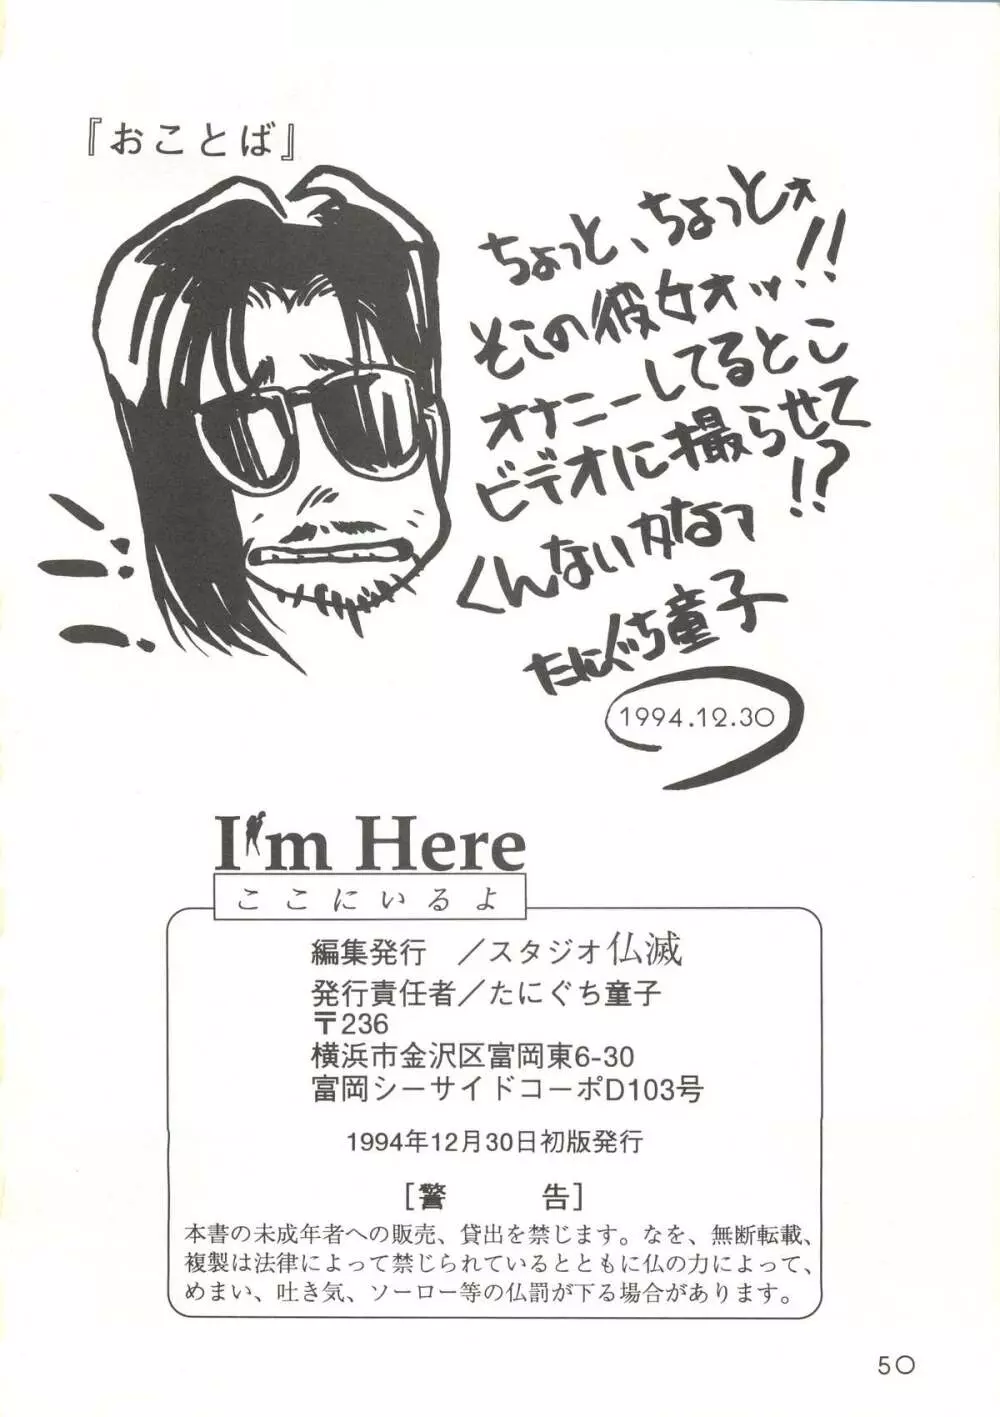 『おことば』
ちょっと、ちょっとォ
そこの彼女オッ!!
オナニーしてるとこ
ビデオに撮らせて
くんないカなァ!?
たにぐち童子
1994.12.30
I'm Here
ここにいるよ
編集発行　／スタジオ仏滅
発行責任者／たにぐち童子
〒236
横浜市金沢区富岡東6-30
富岡シーサイドコーポD103号
1994年12月30日初版発行
［警　　告］
本書の未成年者への販売、貸出を禁じます。なを、無断転載、
複製は法律によって禁じられているとともに仏の力によって、
めまい、吐き気、ソーロー等の仏罰が下る場合があります。
50